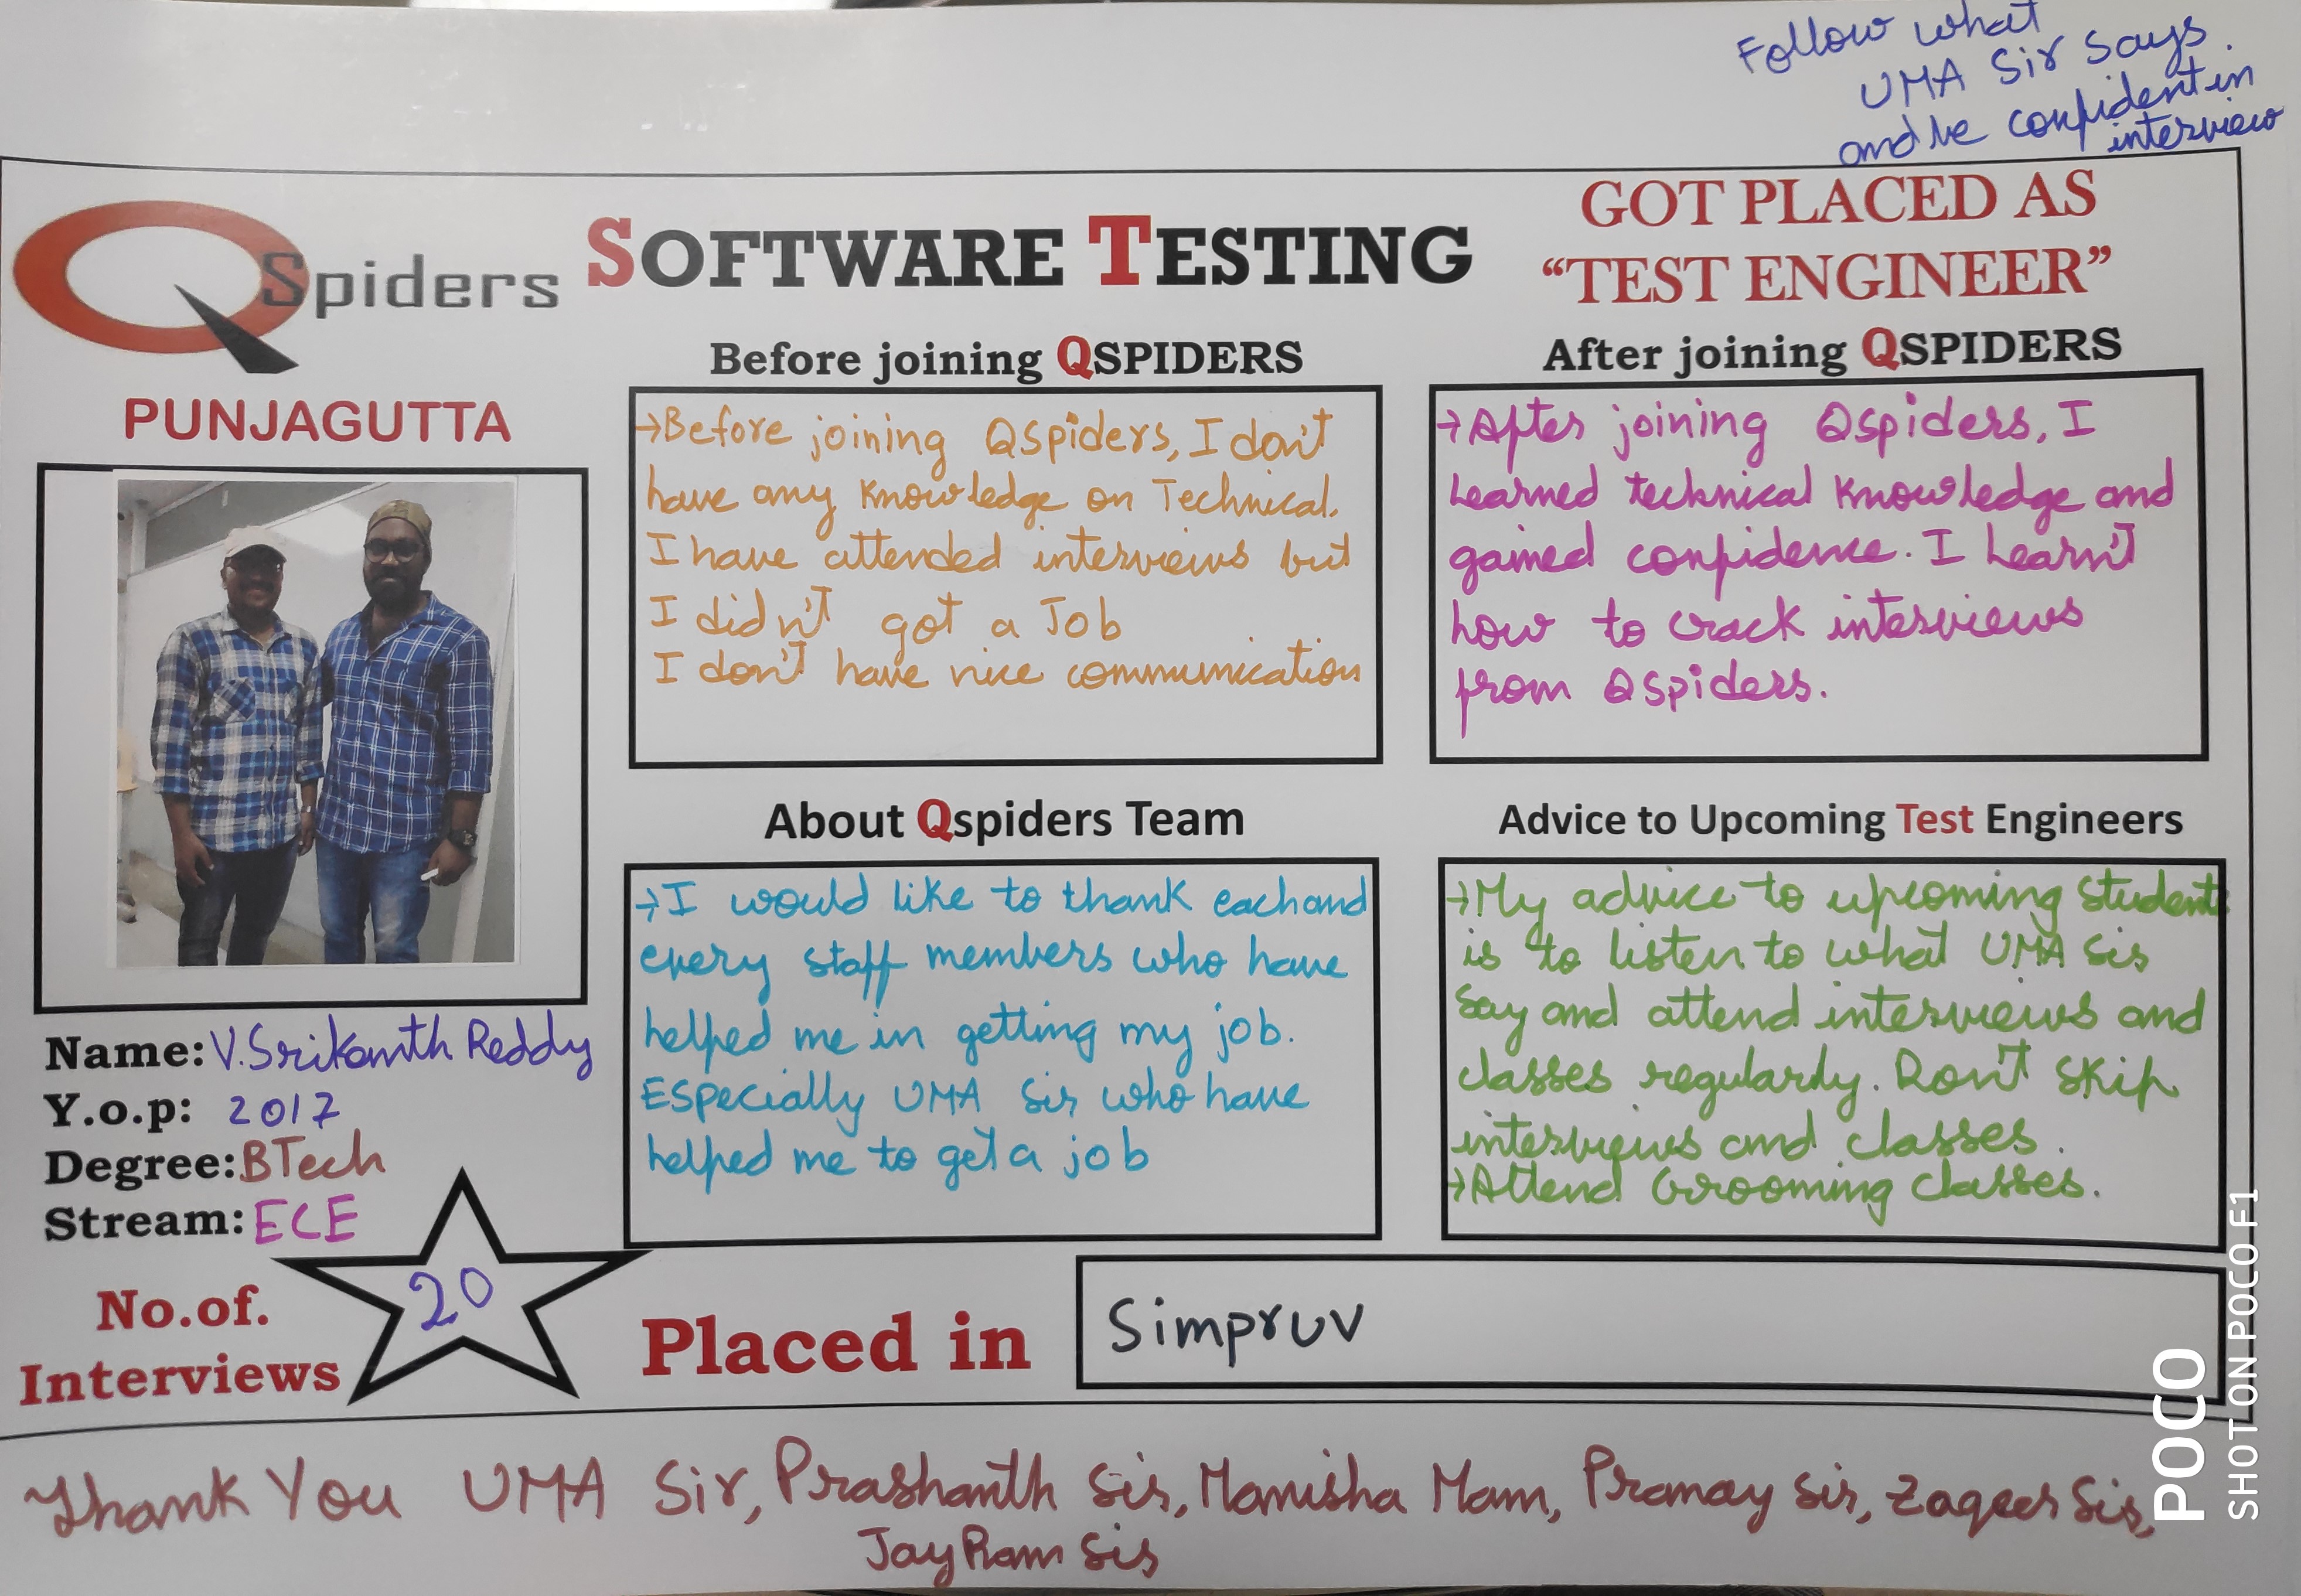 Follow what
UMA Sir says.
and be confident in
interview
QSpiders
SOFTWARE TESTING
GOT PLACED AS
“TEST ENGINEER”
PUNJAGUTTA
Before joining QSPIDERS
→Before joining QSpiders, I don't
have any knowledge on Technical.
I have attended interviews but
I didn't got a Job
I don't have nice communication
After joining QSPIDERS
→After joining QSpiders, I
Learned technical knowledge and
gained confidence. I Learn't
how to crack interviews
from QSpiders.
Name: V. Srikanth Reddy
Y.o.p: 2017
Degree: BTech
Stream: ECE
No.of.
Interviews
20
About Qspiders Team
→I would like to thank each and
every staff members who have
helped me in getting my job.
Especially UMA Sir who have
helped me to get a job
Advice to Upcoming Test Engineers
→My advice to upcoming students
is to listen to what UMA Sir
Say and attend interviews and
classes regularly. Don't skip
interviews and classes.
→Attend Grooming classes.
Placed in
Simpruv
Thank You UMA Sir, Prashanth Sir, Manisha Mam, Pranay Sir, Zaqeer Sir,
JayRam Sir
POCO
SHOT ON POCO F1